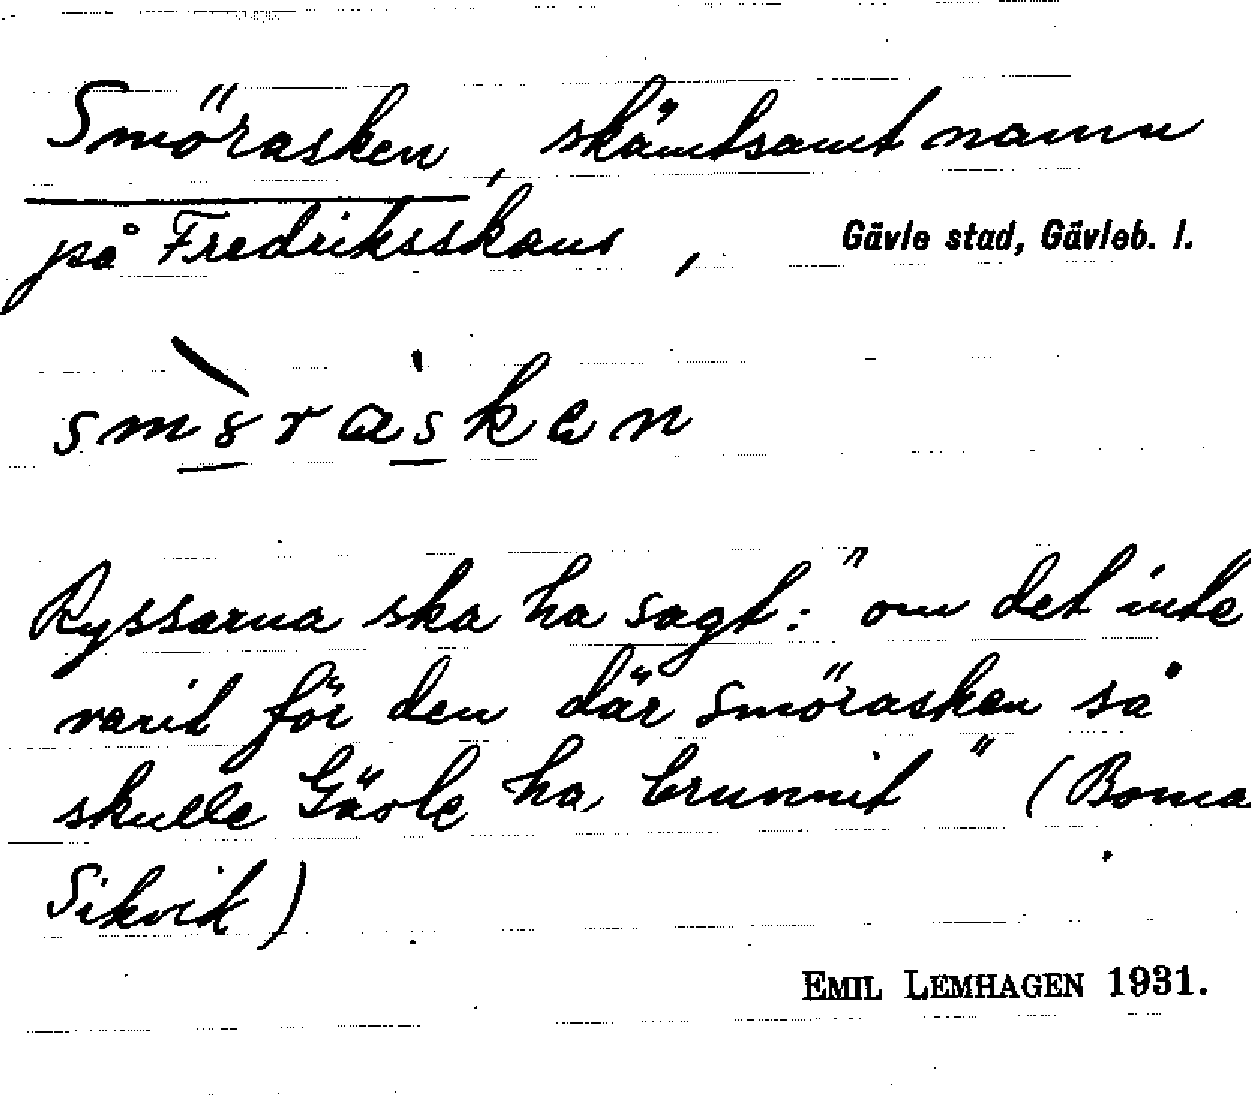 Smörasken, skämtsamt namn
på Fredriksskans, Gävle stad, Gävleb. l.
Ryssarna ska ha sagt: "om det inte
varit för den där smörasken så
skulle Gävle ha brunnit" (Boma
Sikvik)
EMIL LEMHAGEN 1931.